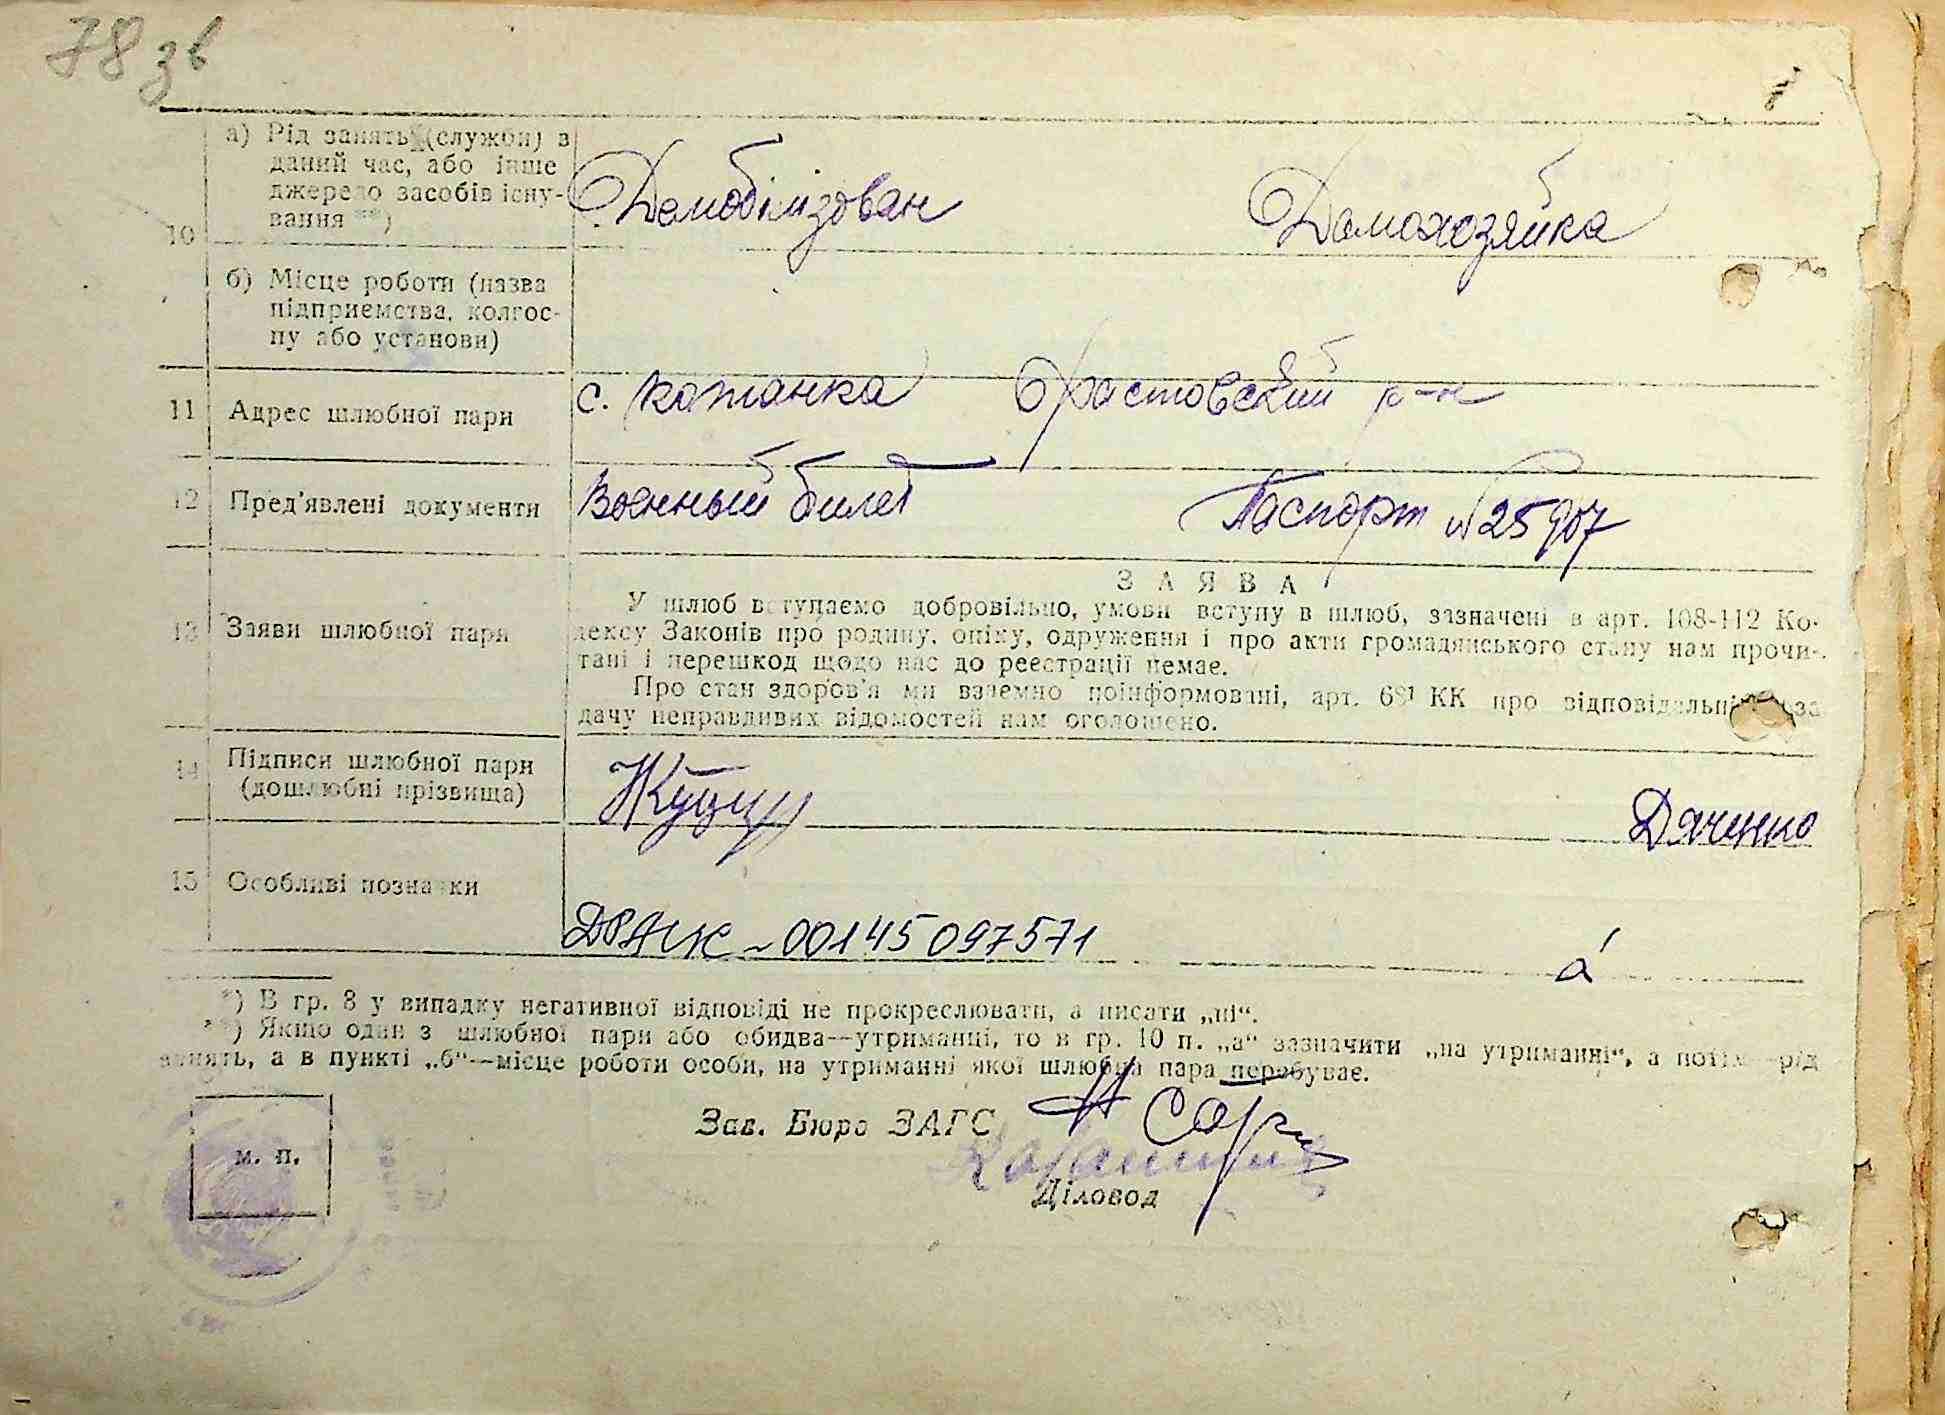 78 зв
10
а) Рід занять (служби) в
даний час, або інше
джерело засобів існу-
вання **)
Демобілізован Домохозяйка
б) Місце роботи (назва
підприємства, колгос-
пу або установи)
11 Адрес шлюбної пари с. Кожанка Фастовский р-н
12 Пред'явлені документи Военный билет Паспорт №25907
З А Я В А
13 Заяви шлюбної пари
У шлюб вступаємо добровільно, умови вступу в шлюб, зазначені в арт. 108-112 Ко-
дексу Законів про родину, опіку, одруження і про акти громадянського стану нам прочи-
тані і перешкод щодо нас до реєстрації немає.
Про стан здоров'я ми взаємно поінформовані, арт. 68¹ КК про відповідальні за
дачу неправдивих відомостей нам оголошено.
14 Підписи шлюбної пари
(дошлюбні прізвища)
Дяченко
15 Особливі познаки
ДРАЦС-00145097571
*) В гр. 8 у випадку негативної відповіді не прокреслювати, а писати „ні“.
**) Якщо один з шлюбної пари або обидва--утриманці, то в гр. 10 п. „а“ зазначити „на утриманні“, а потім--рід
занять, а в пункті „б“--місце роботи особи, на утриманні якої шлюбна пара перебуває.
Зав. Бюро ЗАГС
м. п.
Діловод